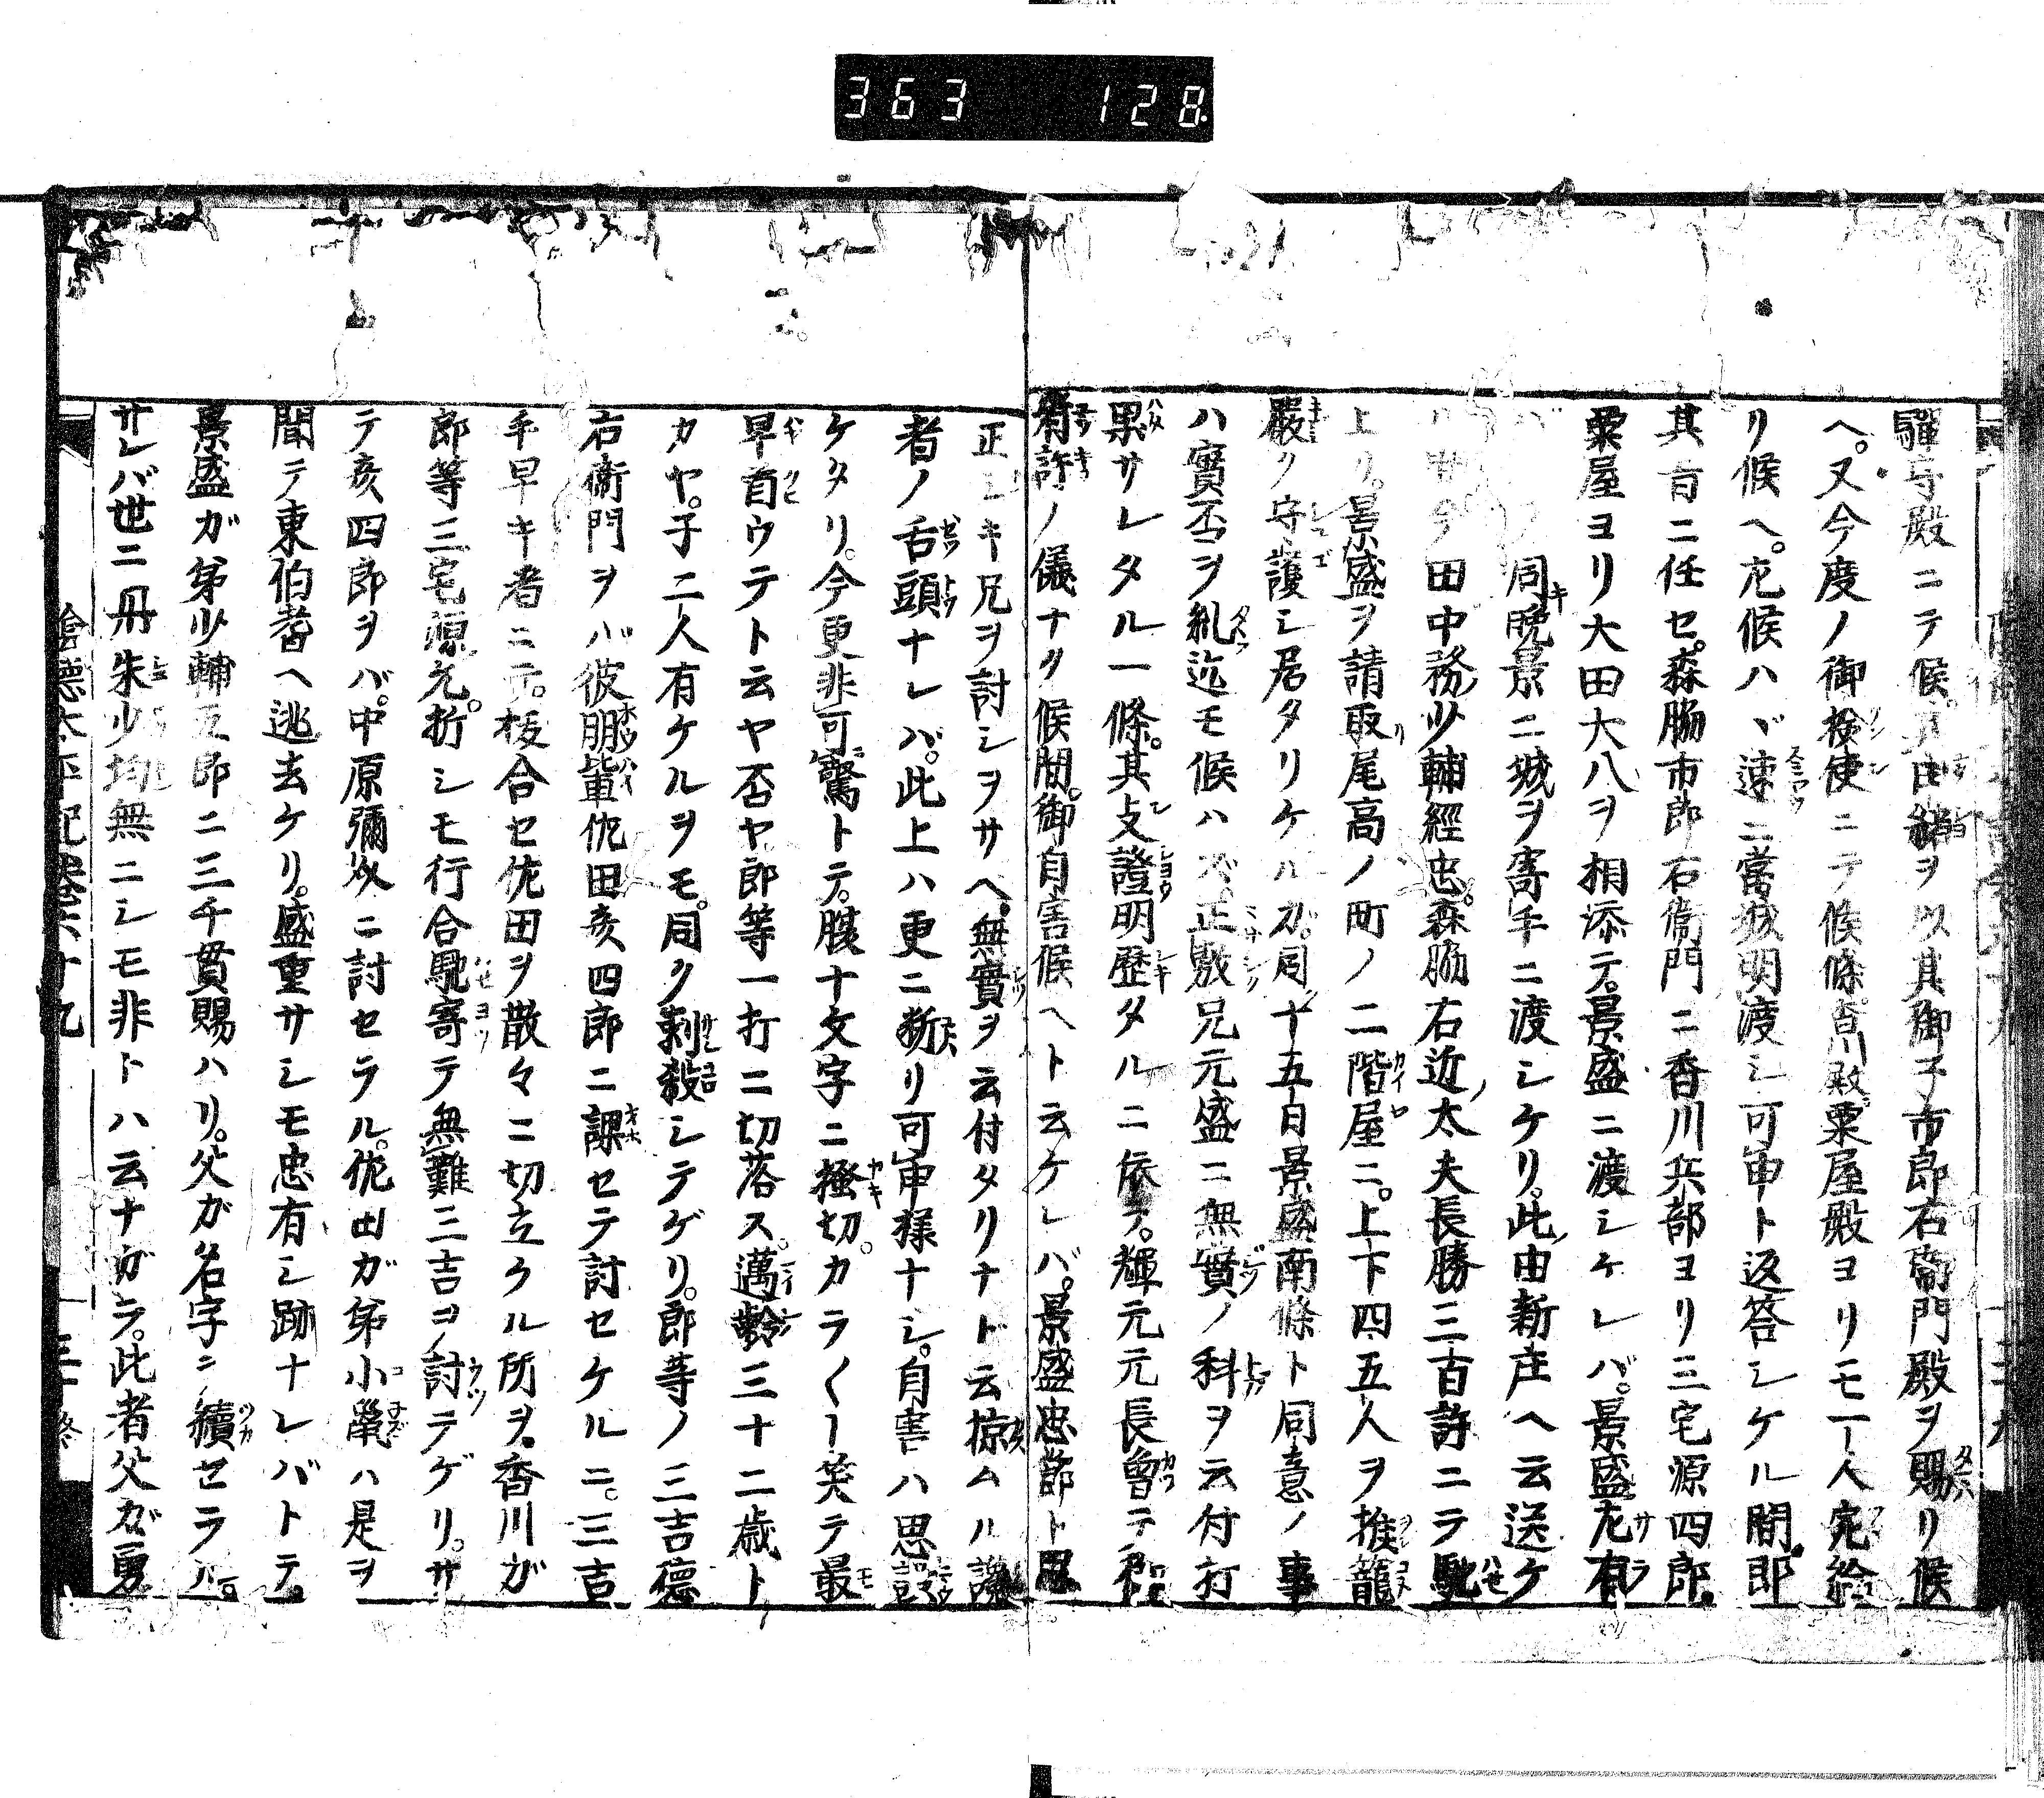 363 128
驒守殿ニテ候其由緒ヲ以其御子市郎右衞門殿ヲ賜リ候
ヘ。又今度ノ御撿使ニテ候條香川殿粟屋殿ヨリモ一人宛給
リ候ヘ。左候ハヾ速ニ當城明渡シ可申ト返答シケル間。即
其旨ニ任セ。森脇市郎右衞門ニ香川兵部ヨリ三宅源四郎。
粟屋ヨリ大田大八ヲ相添テ。景盛ニ渡シケレバ。景盛左有
同晩景ニ城ヲ寄手ニ渡シケリ。此由新庄ヘ云送ケ
田中務少輔經忠。森脇右近太夫長勝三百許ニテ馳
上リ。景盛ヲ請取尾高ノ町ノ二階屋ニ。上下四五人ヲ推籠
嚴ク守護シ居タリケルガ。同十五日景盛南條ト同意ノ事
ハ實否ヲ糺迄モ候ハズ。正敷兄元盛ニ無實ノ科ヲ云付打
果サレタル一條。其支證明歷タルニ依テ。輝元元長曾テ
許ノ儀ナク候間。御自害候ヘト云ケレバ。景盛忠節ト思
正シキ兄ヲ討シヲサヘ。無實ヲ云付タリナド云掠ムル讒
者ノ舌頭ナレバ。此上ハ更ニ斷リ可申樣ナシ。自害ハ思設
ケタリ。今更非可驚トテ。腹十文字ニ搔切。カラ〱ト笑テ最
早首ウテト云ヤ否ヤ郎等一打ニ切落ス。邁齡三十二歳ト
カヤ。子二人有ケルヲモ。同ク刺殺シテゲリ。郎等ノ三吉德
右衞門ヲバ彼朋輩佗田亥四郎ニ課セテ討セケルニ。三吉
手早キ者ニテ。拔合セ佗田ヲ散々ニ切立クル所ヲ。香川ガ
郎等三宅源允。折シモ行合馳寄テ無難三吉ヲ討テゲリ。サ
テ亥四郎ヲバ。中原彌次ニ討セラル。佗田ガ弟小鼡ハ是ヲ
聞テ東伯耆ヘ逃去ケリ。盛重サシモ忠有シ跡ナレバトテ。
景盛ガ弟少輔五郎ニ三千貫賜ハリ。父ガ名字ニ續セラル。
サレバ世ニ丹朱少均無ニシモ非トハ云ナガラ。此者父ガ勇
陰德太平記卷六十九